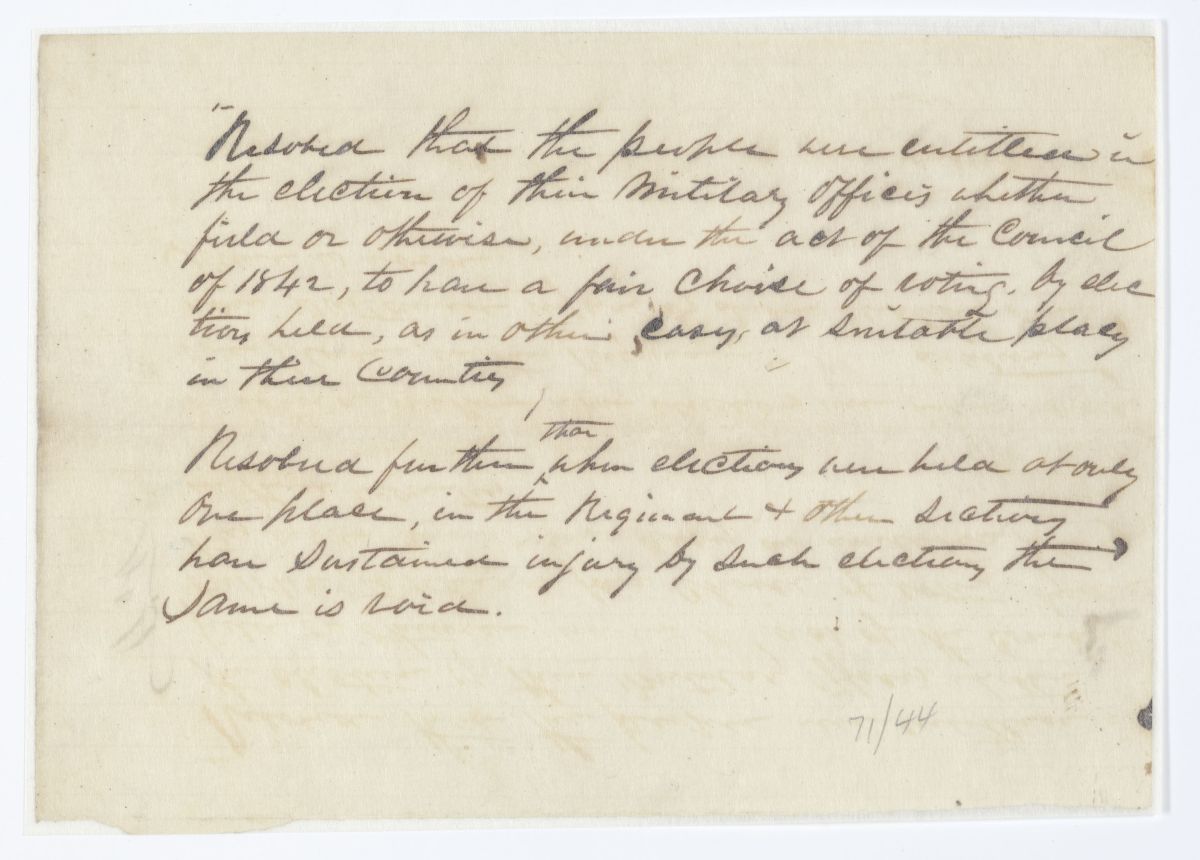 "Resolved that the people were entitled in
the election of their Military Officers whether
field or otherwise, under the act of the Council
of 1842, to have a fair choise of voting, by elec
tion held, as in other cases, at suitable places
in their Counties
that
Resolved further when elections were held at only
one place, in the Regiment & other sections
have sustained injury by such elections the
same is void.
71/44